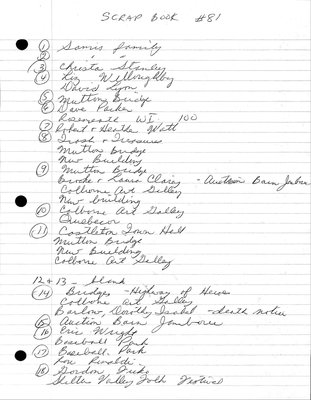 SCRAP BOOK #81
① Samis family
② " "
③ Christa Stanley
④ Liz Willoughby
David Lyon
⑤ Mutton Bridge
⑥ Dave Packer
Roseneath W.I. 100
⑦ Robert & Heather Watt
⑧ Trash & Treasures
Mutton Bridge
New Building
⑨ Mutton Bridge
Brooke & Laurie Clairy - Auction Barn Jamboree
Colborne Art Gallery
New building
⑩ Colborne Art Gallery
Quebecor
⑪ Castleton Town Hall
Mutton Bridge
New Building
Colborne Art Gallery
12 & 13 - blank
⑭ Bridges - Highway of Heroes
Colborne Art Gallery
Barlow, Dorothy Isabel - death notice
⑮ Auction Barn Jamboree
⑯ Eric Wright
Baseball Park
⑰ Baseball Park
Ron Rinaldi
⑱ Gordon,
Shelter Valley Folk Festival